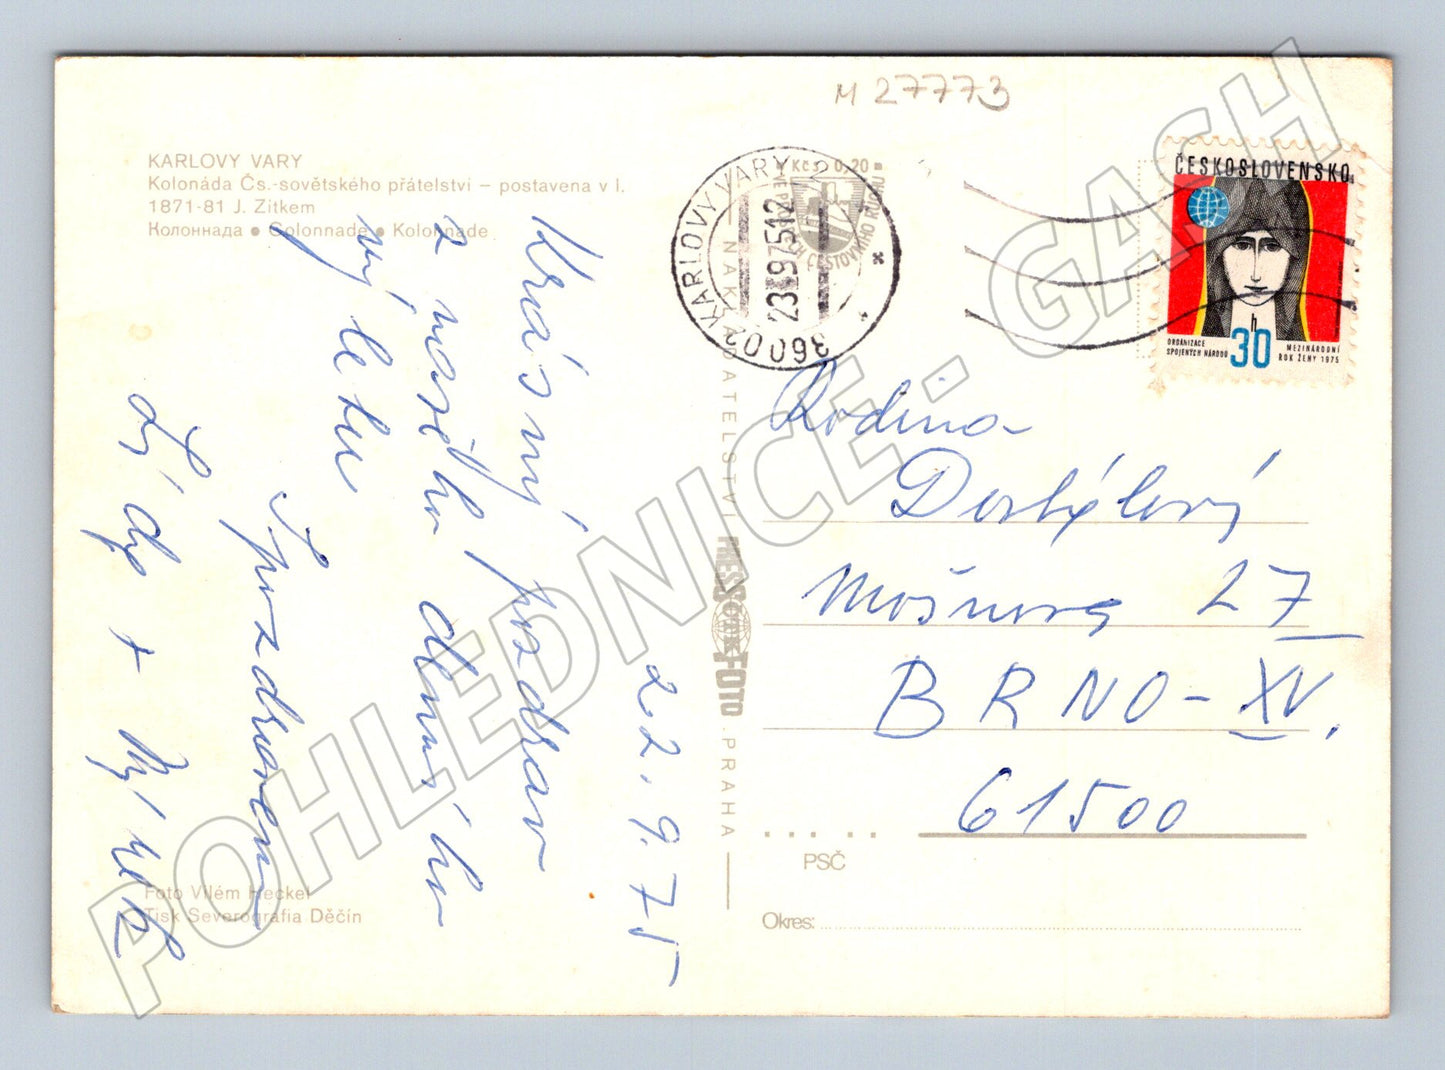 M 27773
KARLOVY VARY
Kolonáda Čs.-sovětského přátelství – postavena v l.
1871-81 J. Zítkem
Колоннада • Colonnade • Kolonnade
22.9.75
Krásný pozdrav
z našeho dlouhého
výletu
S pozdravem
360 02 KARLOVY VARY 2
23.9.75 12
Kčs 0,20
ČESKOSLOVENSKO
h
30
ORGANIZACE
SPOJENÝCH NÁRODŮ
MEZINÁRODNÍ
ROK ŽENY 1975
Rodina
Dostálová
Mošnova 27
BRNO-XV.
61500
PSČ
Okres:
NAKLADATELSTVÍ PRESSFOTO PRAHA
Foto Vilém Heckel
Tisk Severografia Děčín
POHLEDNICE - GASH